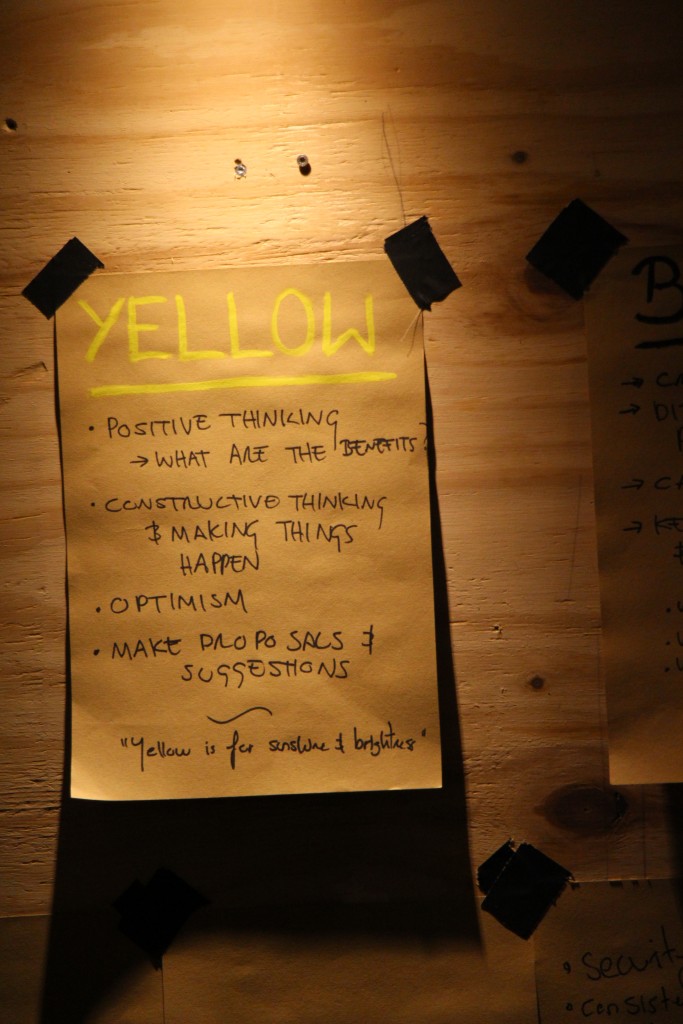 YELLOW
• POSITIVE THINKING
→ WHAT ARE THE BENEFITS?
• CONSTRUCTIVE THINKING
& MAKING THINGS
HAPPEN
• OPTIMISM
• MAKE PROPOSALS &
SUGGESTIONS
"Yellow is for sunshine & brightness"
B
→ CA
→ DI
→ CA
→ KE
• Security
• Consiste